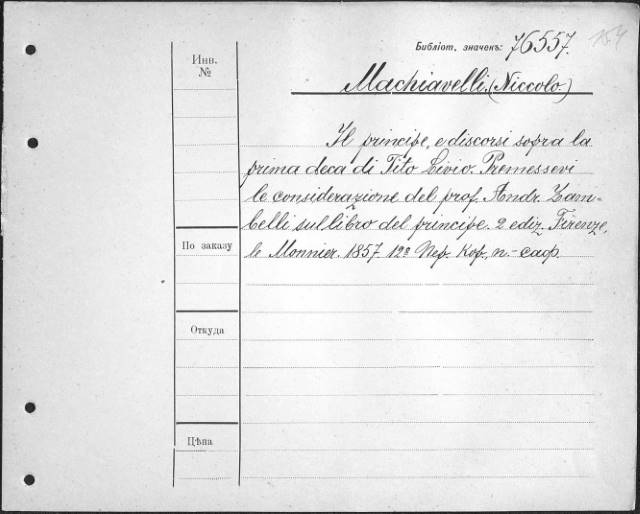 Библіот. значекъ: 76557. 154
Инв.
№
Machiavelli. (Niccolo.)
Il principe, e discorsi sopra la
prima deca di Tito Livio. Premessevi
le considerazione del prof. Andr. Zam-
belli sul libro del principe. 2 ediz. Firenze,
le Monnier. 1857. 12º Пер. Кор, п.-саф.
По заказу
Откуда
Цѣна